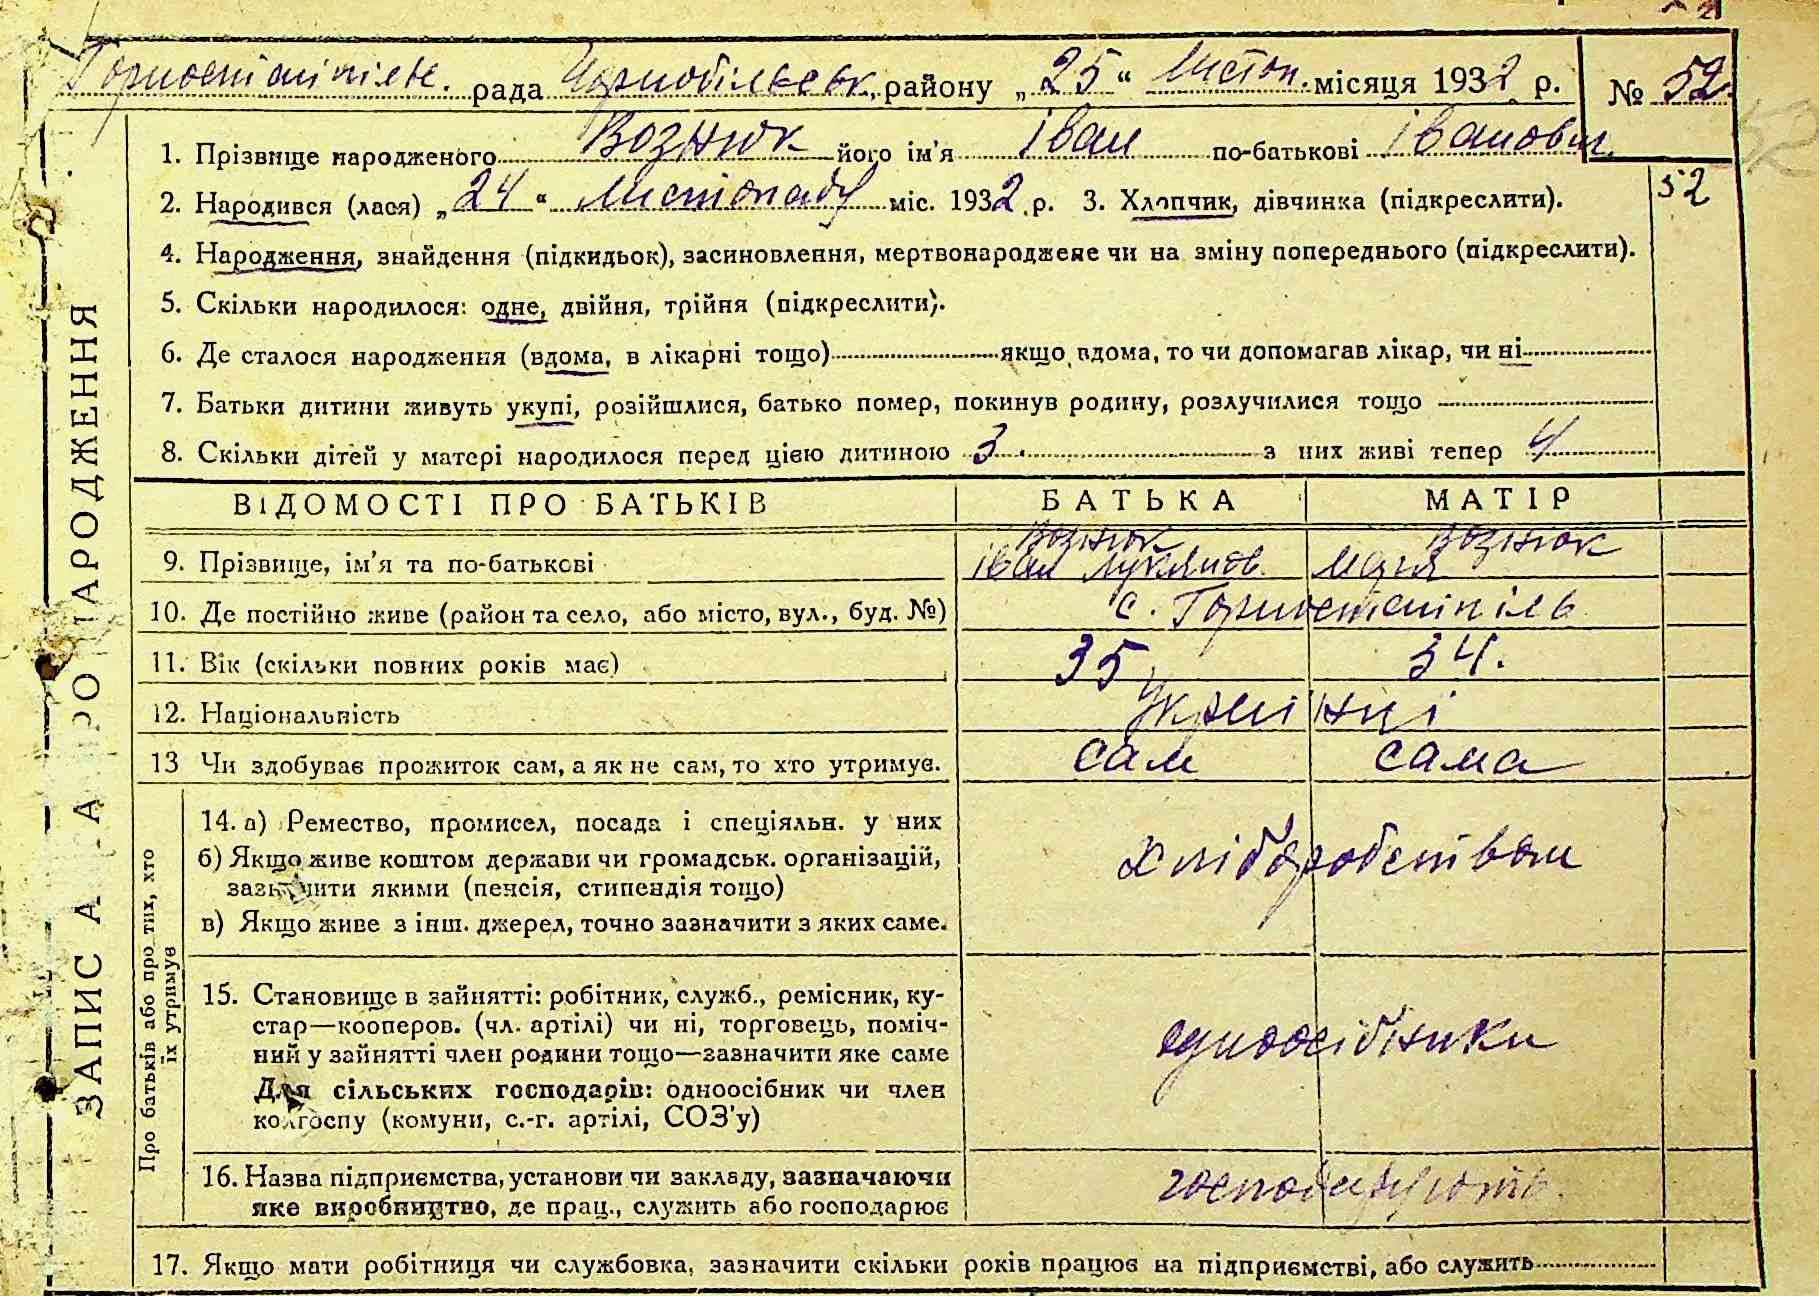 Горностайпільс. рада Чорнобильськ. району „25“ Листоп. місяця 1932 р. № 52.
1. Прізвище народженого Вознюк його ім'я Іван по-батькові Іванович.
52
2. Народився (лася) „24“ листопаду міс. 1932 р. 3. Хлопчик, дівчинка (підкреслити).
4. Народження, знайдення (підкидьок), засиновлення, мертвонароджене чи на зміну попереднього (підкреслити).
5. Скільки народилося: одне, двійня, трійня (підкреслити).
6. Де сталося народження (вдома, в лікарні тощо) якщо вдома, то чи допомагав лікар, чи ні
7. Батьки дитини живуть укупі, розійшлися, батько помер, покинув родину, розлучилися тощо
8. Скільки дітей у матері народилося перед цією дитиною 3. з них живі тепер 4
ВІДОМОСТІ ПРО БАТЬКІВ БАТЬКА МАТІР
Вознюк Вознюк
9. Прізвище, ім'я та по-батькові Іван Лукянов. Марія
10. Де постійно живе (район та село, або місто, вул., буд. №) с. Горностайпіль
11. Вік (скільки повних років має) 35 34.
12. Національність Українці
13 Чи здобуває прожиток сам, а як не сам, то хто утримує. сам сама
14. а) Ремество, промисел, посада і спеціяльн. у них
б) Якщо живе коштом держави чи громадськ. організацій, хліборобством
зазначити якими (пенсія, стипендія тощо)
в) Якщо живе з інш. джерел, точно зазначити з яких саме.
15. Становище в зайнятті: робітник, служб., ремісник, ку-
стар—кооперов. (чл. артілі) чи ні, торговець, поміч-
ний у зайнятті член родини тощо—зазначити яке саме одноосібники
Для сільських господарів: одноосібник чи член
колгоспу (комуни, с.-г. артілі, СОЗ'у)
16. Назва підприємства, установи чи закладу, зазначаючи господарують.
яке виробництво, де прац., служить або господарює
17. Якщо мати робітниця чи службовка, зазначити скільки років працює на підприємстві, або служить
ЗАПИС АКТА ПРО НАРОДЖЕННЯ
Про батьків або про тих, хто
їх утримує